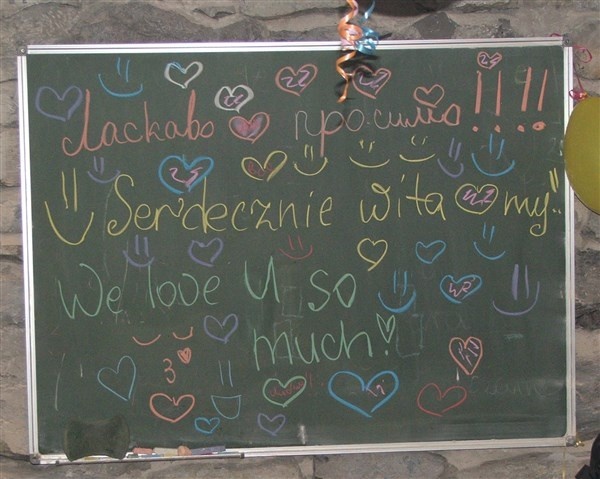 Ласкаво просимо!!!!
Serdecznie witamy!!
We love U so
much!